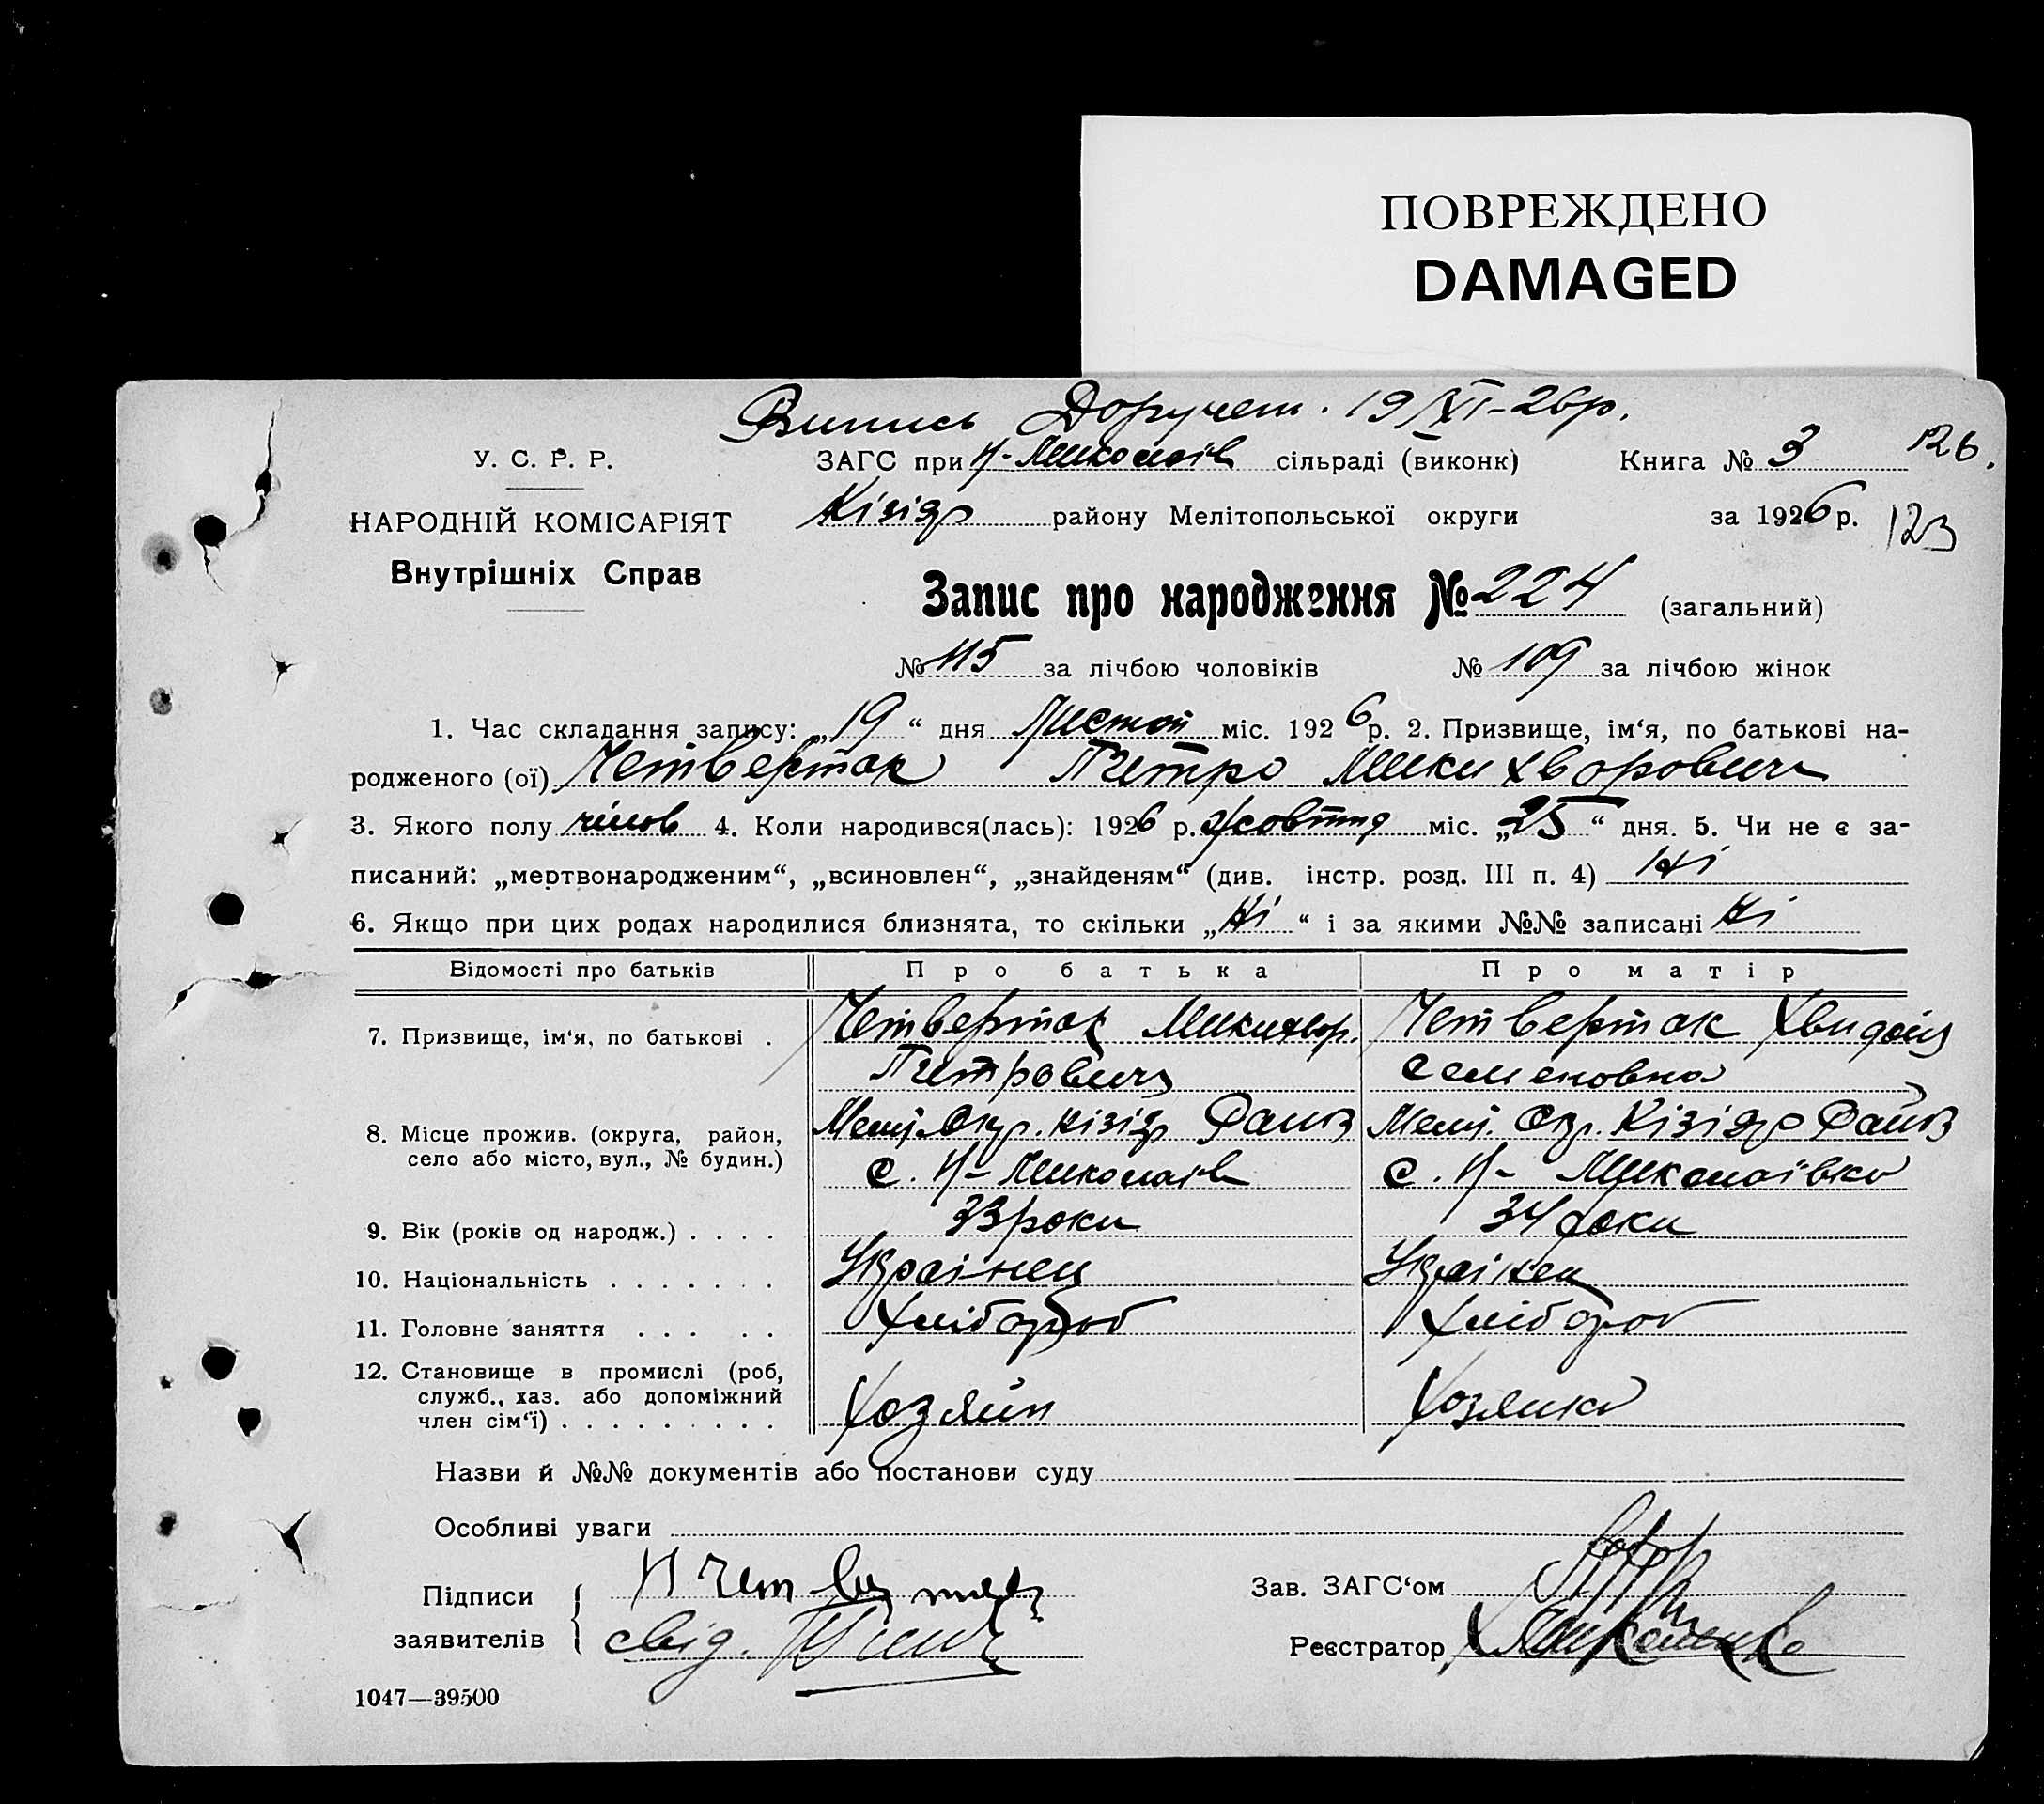 ПОВРЕЖДЕНО
DAMAGED
Випись Доручен. 19/XI-26р.
У. С. Р. Р. ЗАГС при Н-Миколаїв сільраді (виконк) Книга № 3 126.
НАРОДНІЙ КОМІСАРІЯТ Кізіяр району Мелітопольської округи за 1926 р. 123
Внутрішніх Справ
Запис про народження № 224 (загальний)
№ 115 за лічбою чоловіків № 109 за лічбою жінок
1. Час складання запису: „19“ дня Листоп міс. 1926 р. 2. Призвище, ім‘я, по батькові на-
родженого (ої) Четвертак Петро Микихворович
3. Якого полу чолов 4. Коли народився(лась): 1926 р. жовтня міс. „25“ дня. 5. Чи не є за-
писаний: „мертвонародженим“, „всиновлен“, „знайденям“ (див. інстр. розд. III п. 4) Ні
6. Якщо при цих родах народилися близнята, то скільки „Ні“ і за якими №№ записані Ні
Відомості про батьків Про батька Про матір
7. Призвище, ім‘я, по батькові . Четвертак Микихвор. Четвертак
Петрович Семеновна
8. Місце прожив. (округа, район, Мелі. Окр. Кізіяр Району Мелі. Окр. Кізіяр Району
село або місто, вул., № будин.) с. Н-Миколаїв с. Н-Миколаївка
9. Вік (років од народж.) . . . . 33 роки 34 роки
10. Національність . . . . . . . Українец Українец
11. Головне заняття . . . . . Хлібороб Хлібороб
12. Становище в промислі (роб,
служб., хаз. або допоміжний Хозяйн Хозяйка
член сім‘ї) . . . . . . . . .
Назви й №№ документів або постанови суду
Особливі уваги
Підписи Зав. ЗАГС‘ом
заявителів свід. Реєстратор
1047—39500